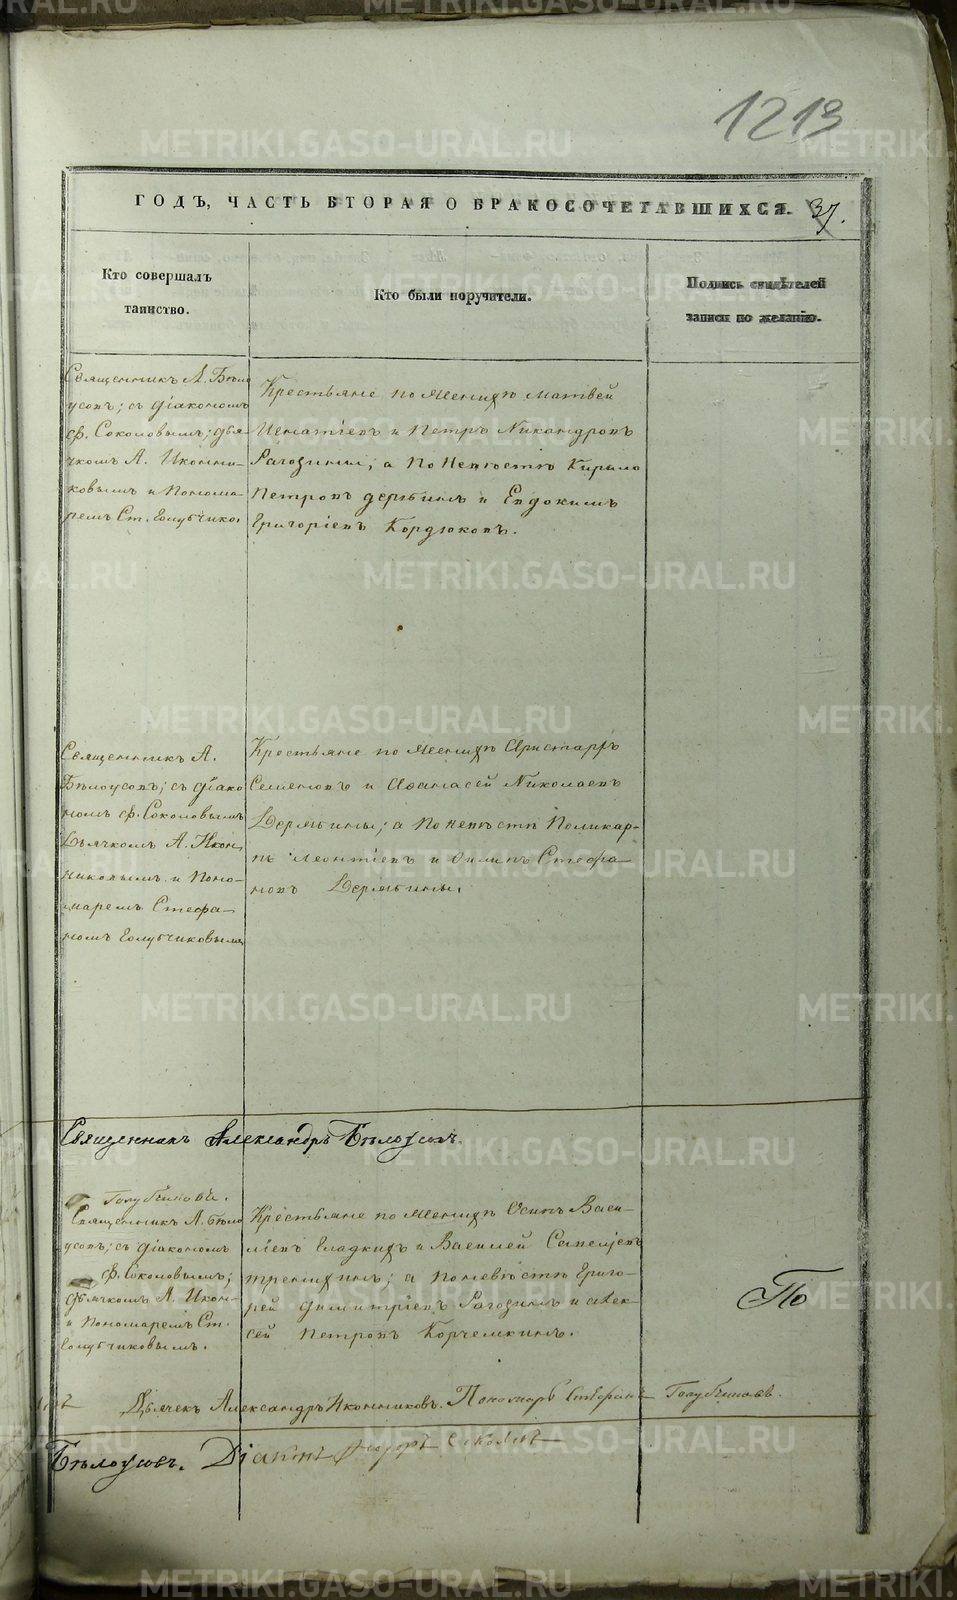 1213
ГОДЪ, ЧАСТЬ ВТОРАЯ О БРАКОСОЧЕТАВШИХСЯ. 37.
Кто совершалъ
таинство.
Кто были поручители.
Подпись свидѣтелей
записи по желанію.
Священникъ А. Бѣло
усовъ; съ діакономъ
Ф. Соколовымъ; дья-
чкомъ А. Иконни-
ковымъ и Понома-
ремъ Ст. Голубчико.
Крестьяне по Женихѣ Матвей
Игнатіевъ и Петръ Никандровъ
Рагозины; а по Невѣстѣ Кирило
Петровъ Дерябинъ и Евдокимъ
Григоріевъ Кордюковъ.
Священникъ А.
Бѣлоусовъ; съ діако
номъ Ф. Соколовымъ
Дьячкомъ А. Икон
никовымъ и Поно-
маремъ Стефа-
номъ Голубчиковымъ
Крестьяне по Женихѣ Аристархъ
Семеновъ и Афанасей Николаевъ
Дерябины; а по невѣстѣ Поликар-
пъ Леонтіевъ и Филипъ Стефа-
новъ Дерябины.
Священникъ Александръ Бѣлоусовъ.
Голубчиковъ.
Священникъ А. Бѣло
усовъ; съ діакономъ
Ф. Соколовымъ;
Дьячкомъ А. Икон-
и Пономаремъ Ст.
Голубчиковымъ.
Крестьяне по Женихѣ Осипъ Васи-
ліевъ Гладкихъ и Василей
а по невѣстѣ Григо-
рей Димитріевъ Рагозинъ и Алек-
сей Петровъ Корчемкинъ.
По
Дьячекъ Александръ Иконниковъ. Пономарь Стефанъ Голубчиковъ.
Бѣлоусовъ. Діаконъ Ѳеодоръ Соколовъ
METRIKI.GASO-URAL.RU